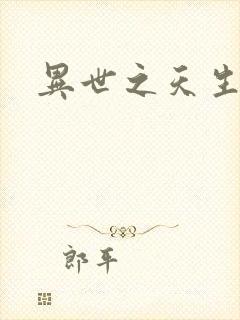 異世之天生
郎平